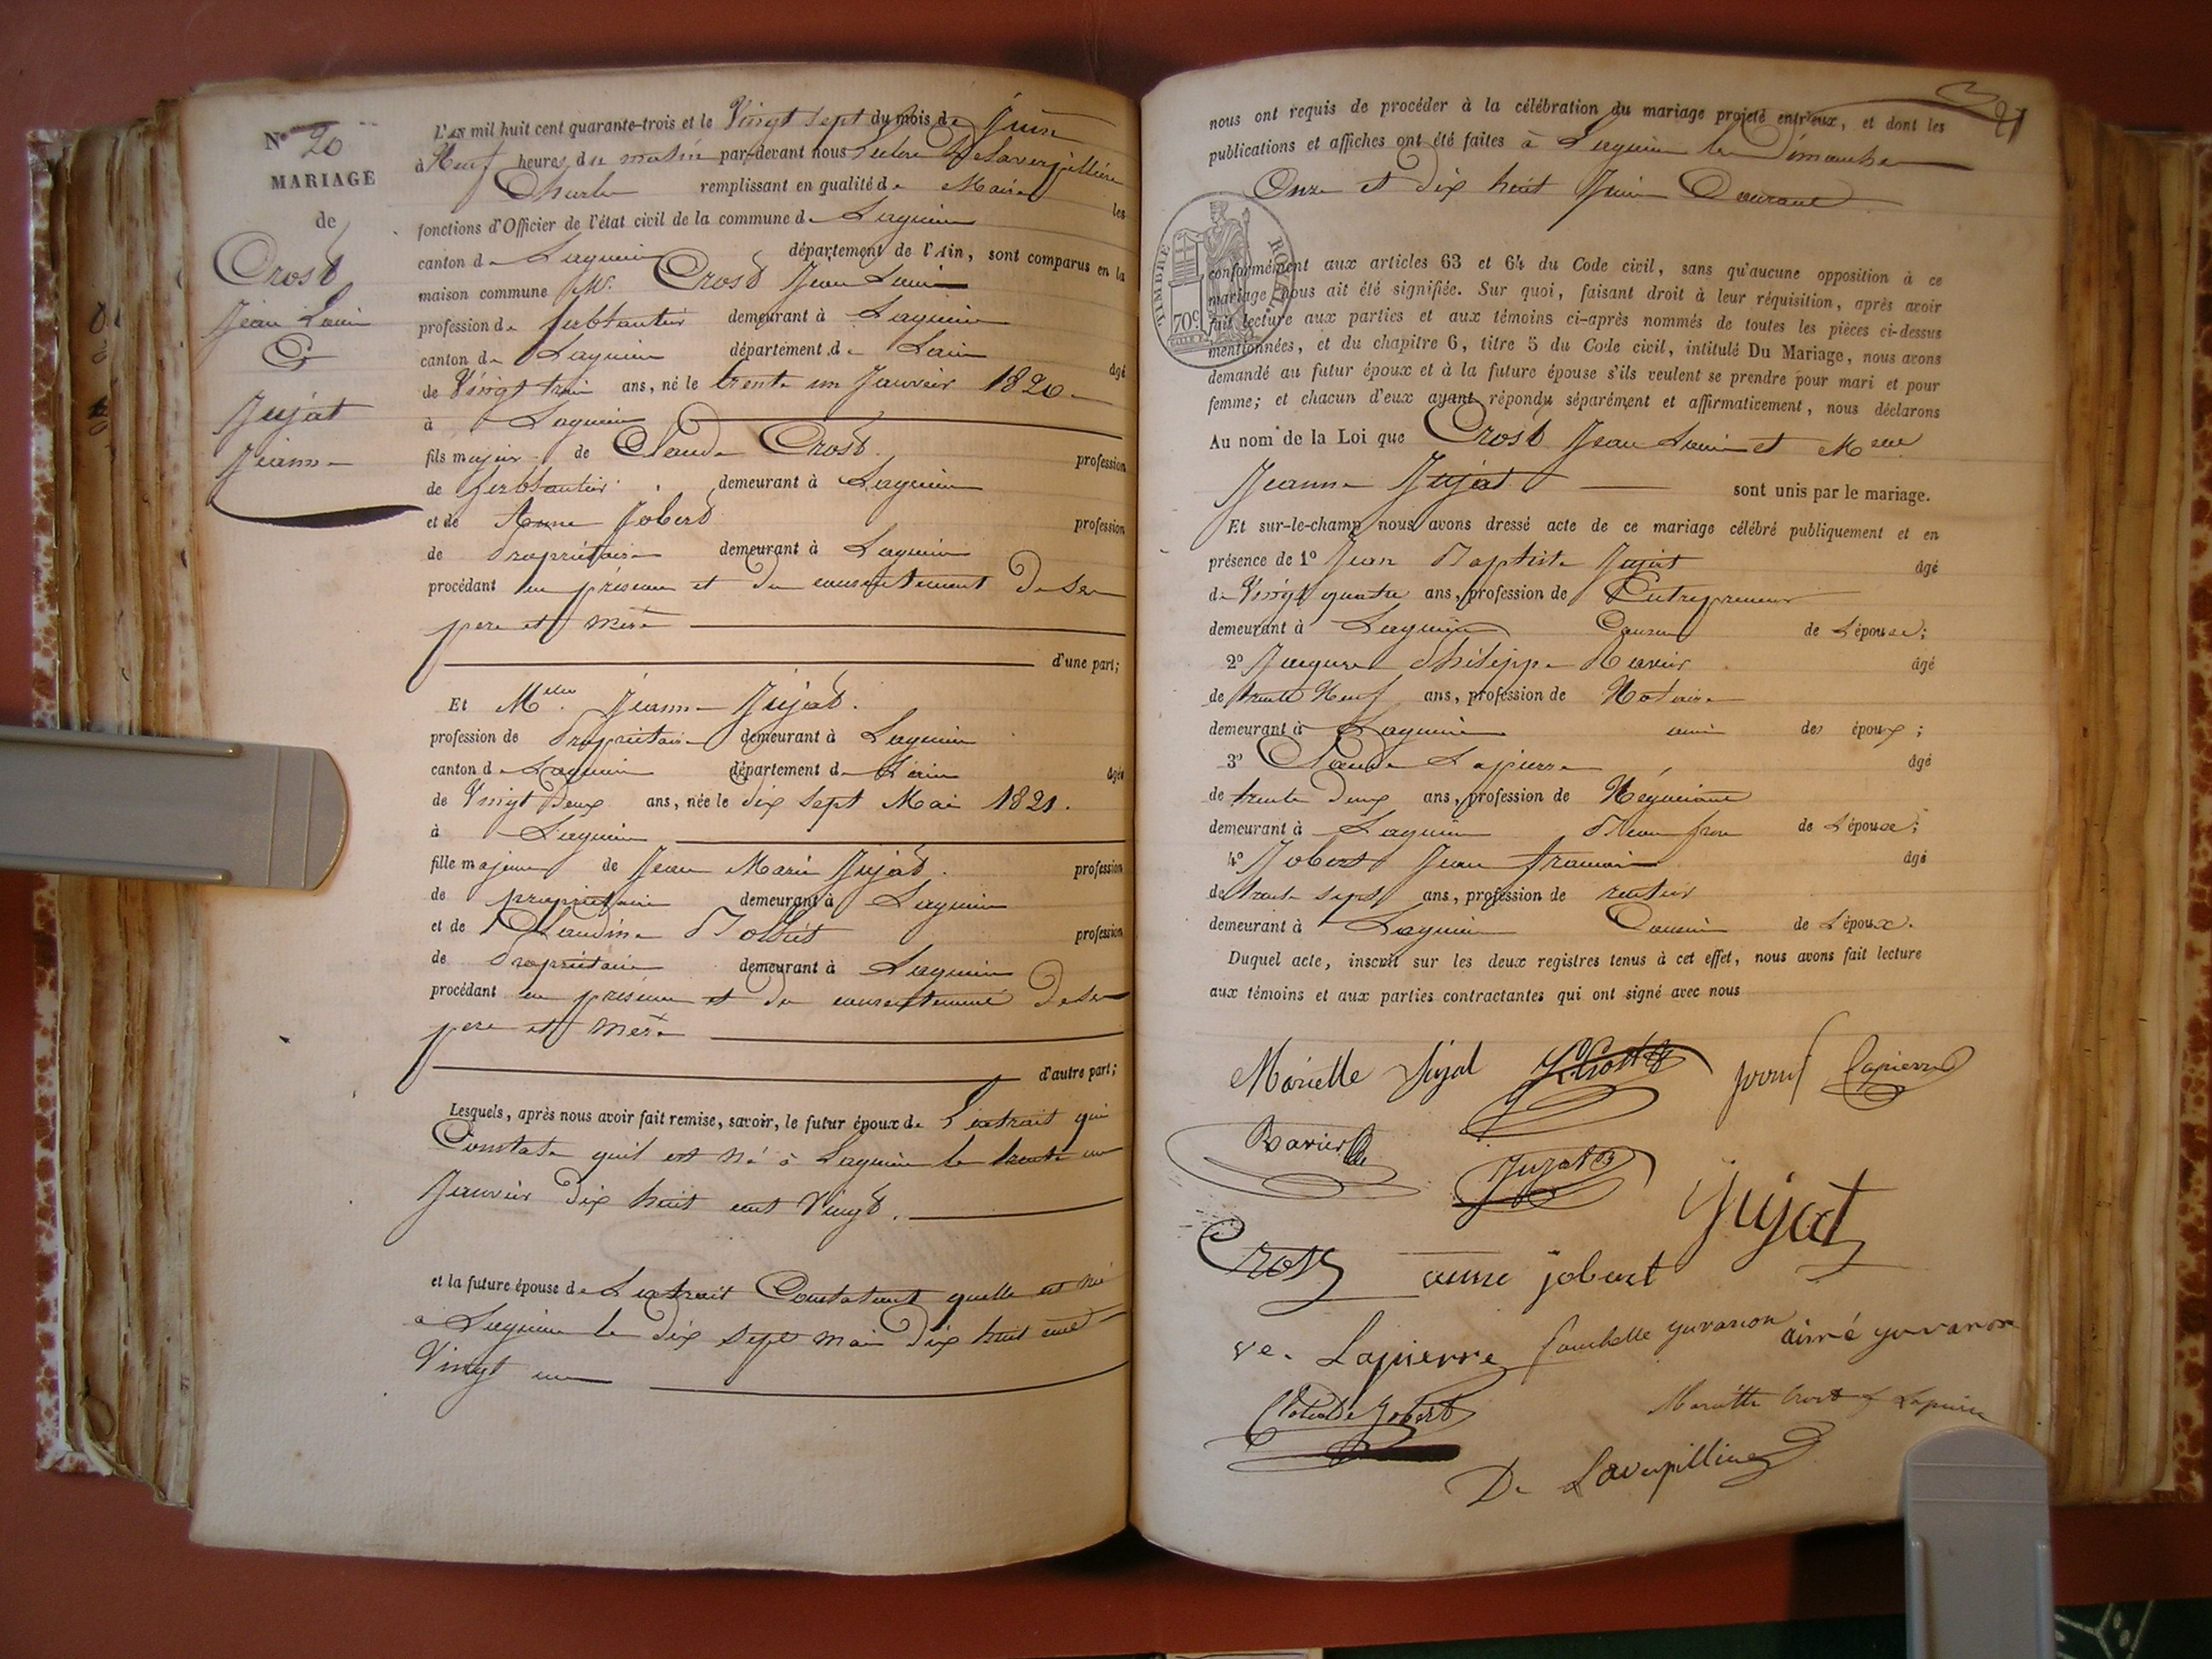 N° 20
MARIAGE
de
Crost
Jean Louis
Et
Jujat
Jeanne
L'an mil huit cent quarante-trois et le Vingt sept du mois de Juin
à Neuf heures du matin par-devant nous Delaverpillière
Charles remplissant en qualité de Maire les
fonctions d'Officier de l'état civil de la commune de Lagnieu
canton de Lagnieu département de l'Ain, sont comparus en la
maison commune Mr. Crost Jean Louis
profession de ferblantier demeurant à Lagnieu
canton de Lagnieu département de Lain âgé
de Vingt trois ans, né le trente un Janvier 1820
à Lagnieu
fils majeur de Claude Crost profession
de ferblantier demeurant à Lagnieu
et de Anne Jobert profession
de Propriétaire demeurant à Lagnieu
procédant en présence et du consentement de ses
pere et mère
d'une part;
Et Melle Jeanne Jujat.
profession de Propriétaire demeurant à Lagnieu
canton de Lagnieu département de Lain âgée
de Vingt deux ans, née le dix sept Mai 1821.
à Lagnieu
fille majeure de Jean Marie Jujat. profession
de propriétaire demeurant à Lagnieu
et de Claudine profession
de Propriétaire demeurant à Lagnieu
procédant en présence et du consentement de ses
pere et mère
d'autre part;
Lesquels, après nous avoir fait remise, savoir, le futur époux de L'extrait qui
Constate quil est né à Lagnieu le trente un
Janvier dix huit cent Vingt.
et la future épouse de Lextrait Constatant quelle est née
a Lagnieu le dix sept mai dix huit cent
Vingt un
21
nous ont requis de procéder à la célébration du mariage projeté entr'eux, et dont les
publications et affiches ont été faites à Lagnieu les Dimanches
Onze et dix huit Juin Courant
TIMBRE ROYAL
70c
conformément aux articles 63 et 64 du Code civil, sans qu'aucune opposition à ce
mariage nous ait été signifiée. Sur quoi, faisant droit à leur réquisition, après avoir
fait lecture aux parties et aux témoins ci-après nommés de toutes les pièces ci-dessus
mentionnées, et du chapitre 6, titre 5 du Code civil, intitulé Du Mariage, nous avons
demandé au futur époux et à la future épouse s'ils veulent se prendre pour mari et pour
femme; et chacun d'eux ayant répondu séparément et affirmativement, nous déclarons
Au nom de la Loi que Crost Jean Louis et Melle
Jeanne Jujat sont unis par le mariage.
Et sur-le-champ nous avons dressé acte de ce mariage célébré publiquement et en
présence de 1° Jean Baptiste Jujat âgé
de Vingt quatre ans, profession de Entrepreneur
demeurant à Lagnieu Cousin de L'épouse;
2° Jacques Philippe Ravier âgé
de trente Neuf ans, profession de Notaire
demeurant à Lagnieu ami des époux;
3° Claude Lapierre âgé
de trente deux ans, profession de Négociant
demeurant à Lagnieu Beau frere de L'épouse;
4° Jobert Jean francois âgé
de trente sept ans, profession de rentier
demeurant à Lagnieu Cousin de L'époux.
Duquel acte, inscrit sur les deux registres tenus à cet effet, nous avons fait lecture
aux témoins et aux parties contractantes qui ont signé avec nous
Mariette Jujat Lapierre
Ravier Jujat
Jujat
Crost anne jobert
ve. Lapierre yvrard
Jobert Mariette Crost f Lapierre
De Laverpilliere